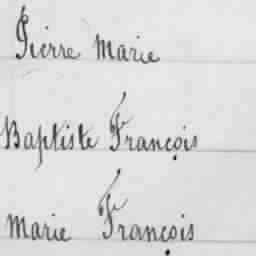 Pierre Marie
Baptiste François
Marie François